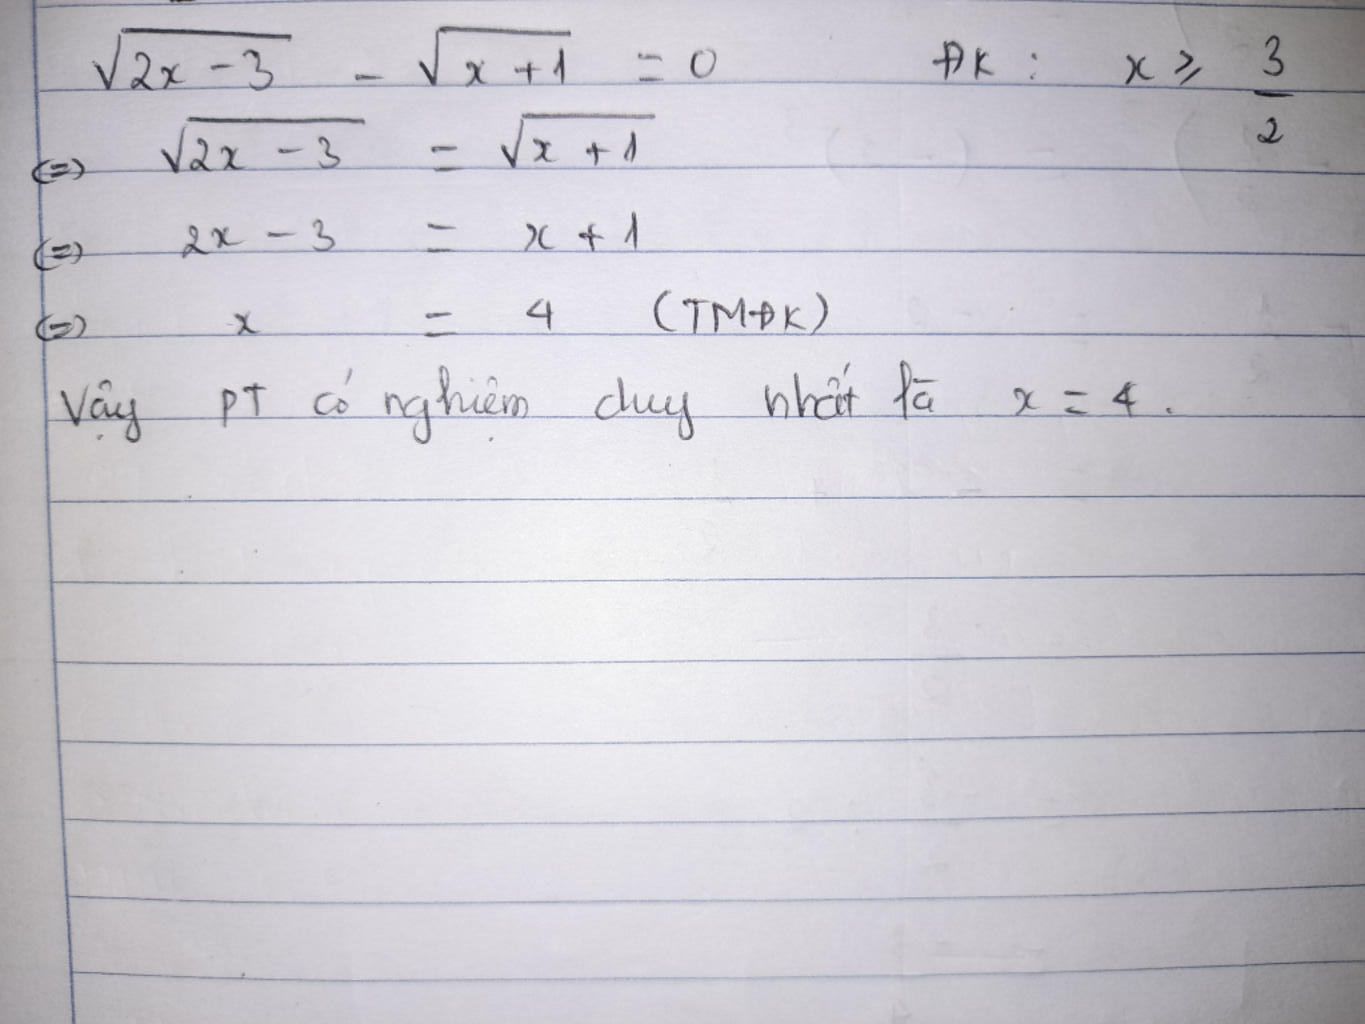 √(2x - 3) - √(x + 1) = 0 ĐK : x ≥ 3/2
(=) √(2x - 3) = √(x + 1)
(=) 2x - 3 = x + 1
(=) x = 4 (TMĐK)
Vậy PT có nghiệm duy nhất là x = 4.